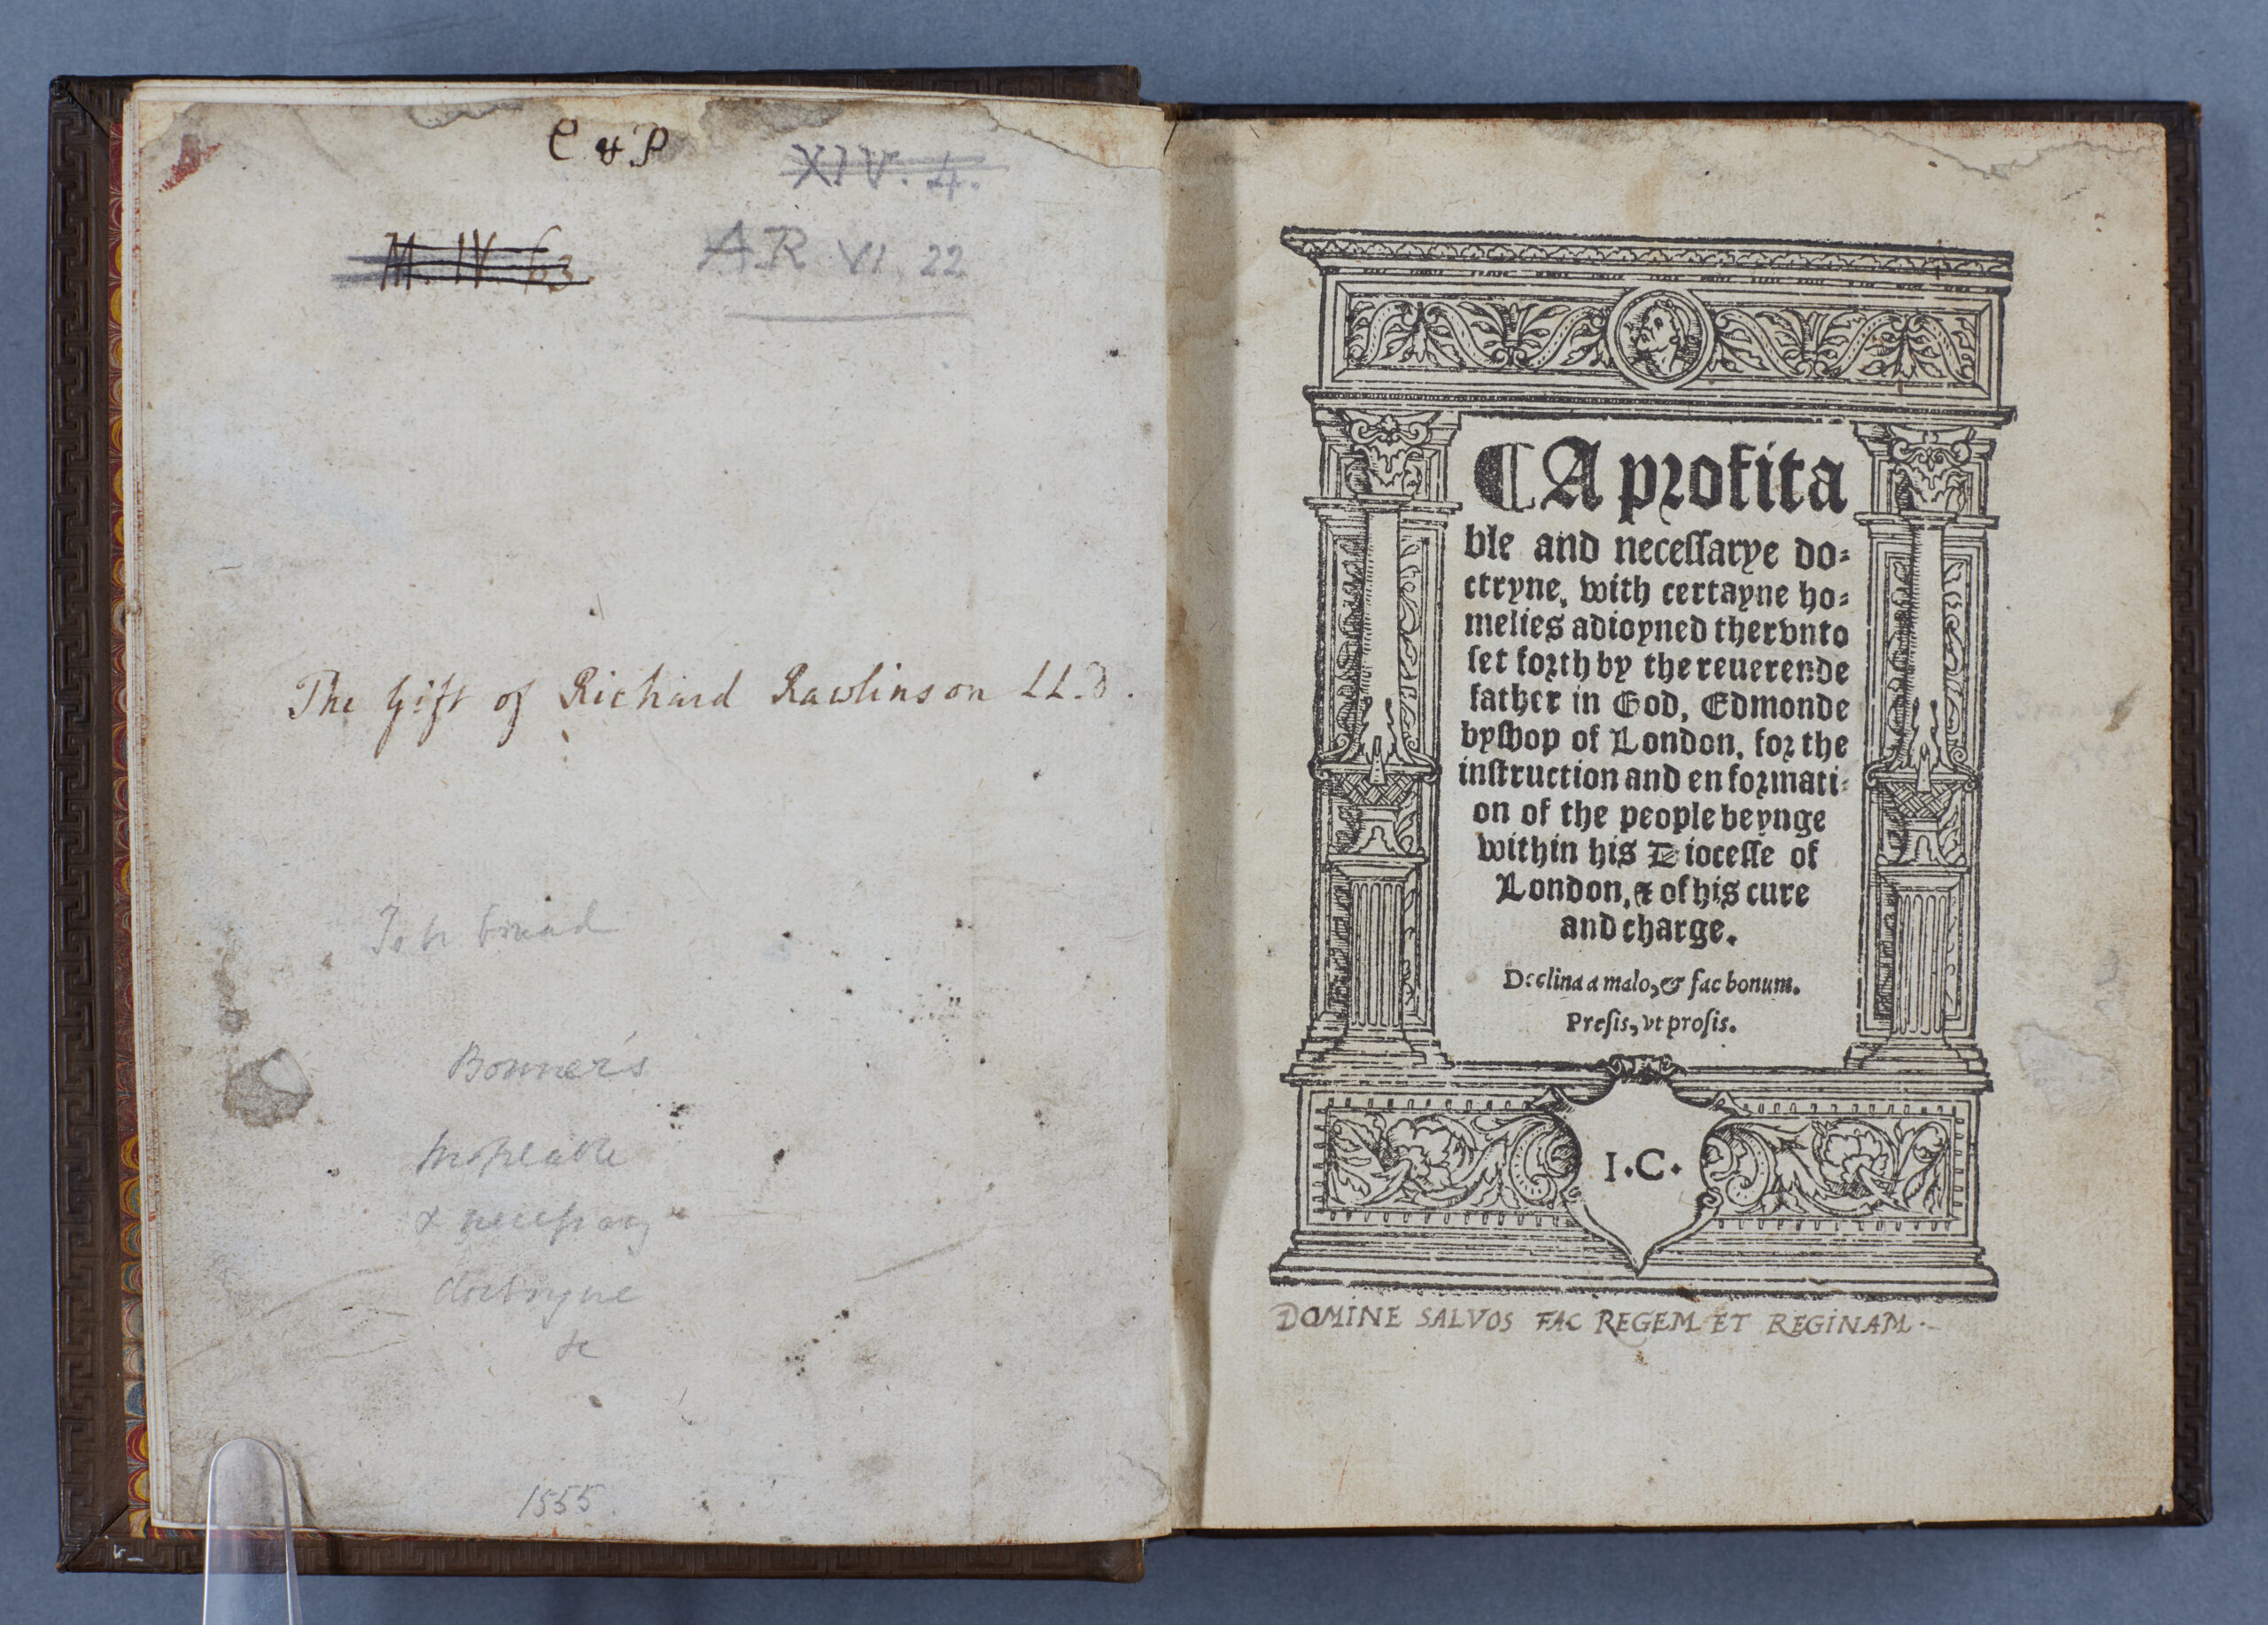 C & P
XIV. 4.
M. IV. 63.
AR VI. 22
The Gift of Richard Rawlinson LL.D.
To be bound
Bonner's
profitable
& necessary
doctryne
&c
1555.
¶ A profita
ble and necessarye do=
ctryne, with certayne ho=
melies adioyned thervnto
set forth by the reuerende
father in God, Edmonde
byshop of London, for the
instruction and enformati=
on of the people beynge
within his Diocesse of
London, & of his cure
and charge.
Declina a malo, & fac bonum.
Presis, vt prosis.
I.C.
DOMINE SALVOS FAC REGEM ET REGINAM.